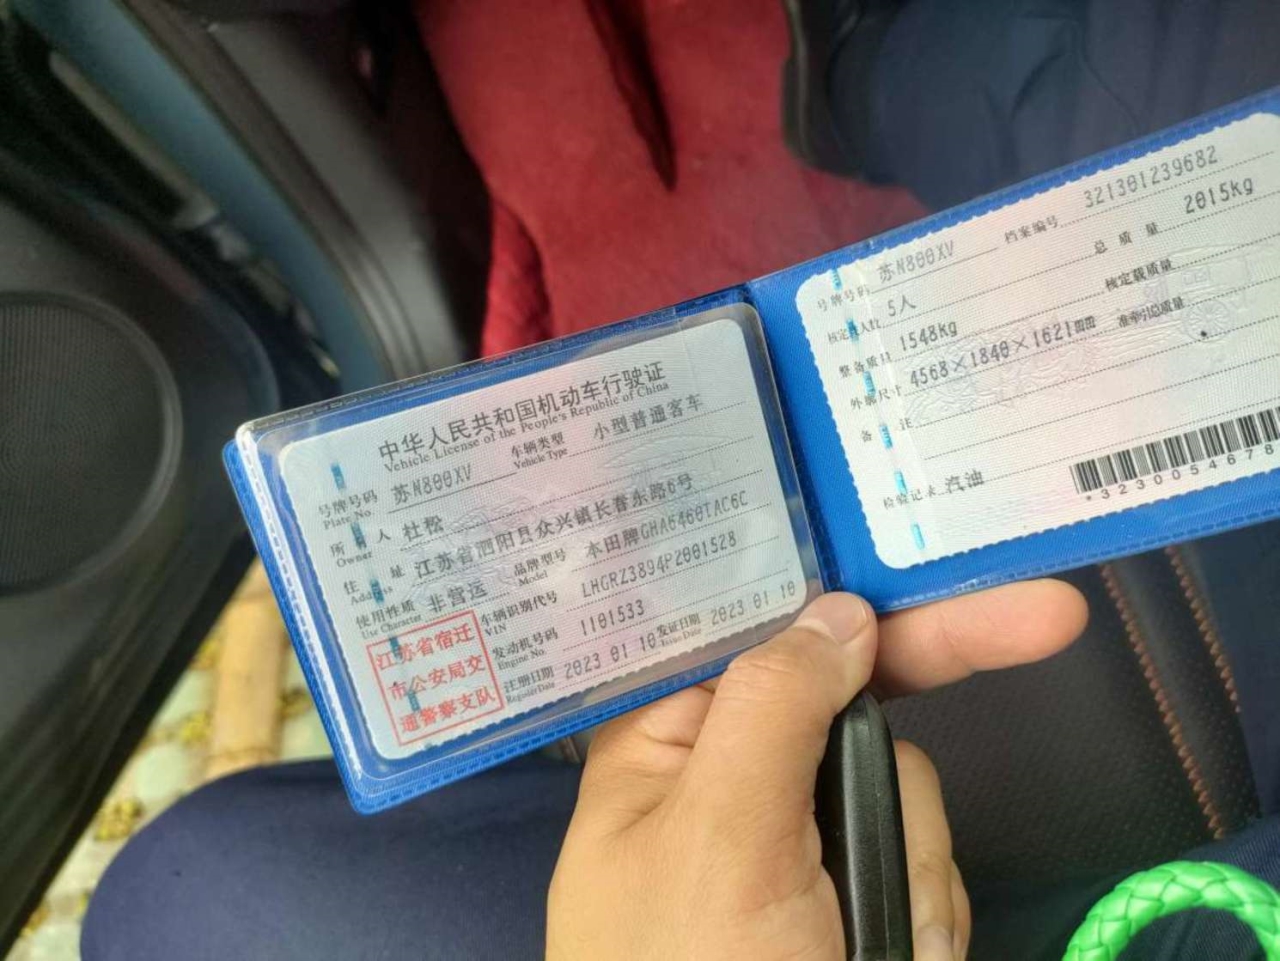 中华人民共和国机动车行驶证
Vehicle License of the People's Republic of China
号牌号码 苏N800XV 车辆类型 小型普通客车
Plate No. Vehicle Type
所 人 杜松
Owner
住 址 江苏省泗阳县众兴镇长春东路6号
Address
使用性质 非营运 品牌型号 本田牌GHA6460TAC6C
Use Character Model
车辆识别代号 LHGRZ3894P2001528
VIN
发动机号码 1101533
Engine No.
注册日期 2023 01 10 发证日期 2023 01 10
Register Date Issue Date
江苏省宿迁
市公安局交
通警察支队
号牌号码 苏N800XV 档案编号 321301239682
核定 人数 5人 总 质 量 2015kg
整备质量 1548kg 核定载质量
外廓尺寸 4568×1840×1621 准牵引总质量
备 注
检验记录 汽油
*3230054678